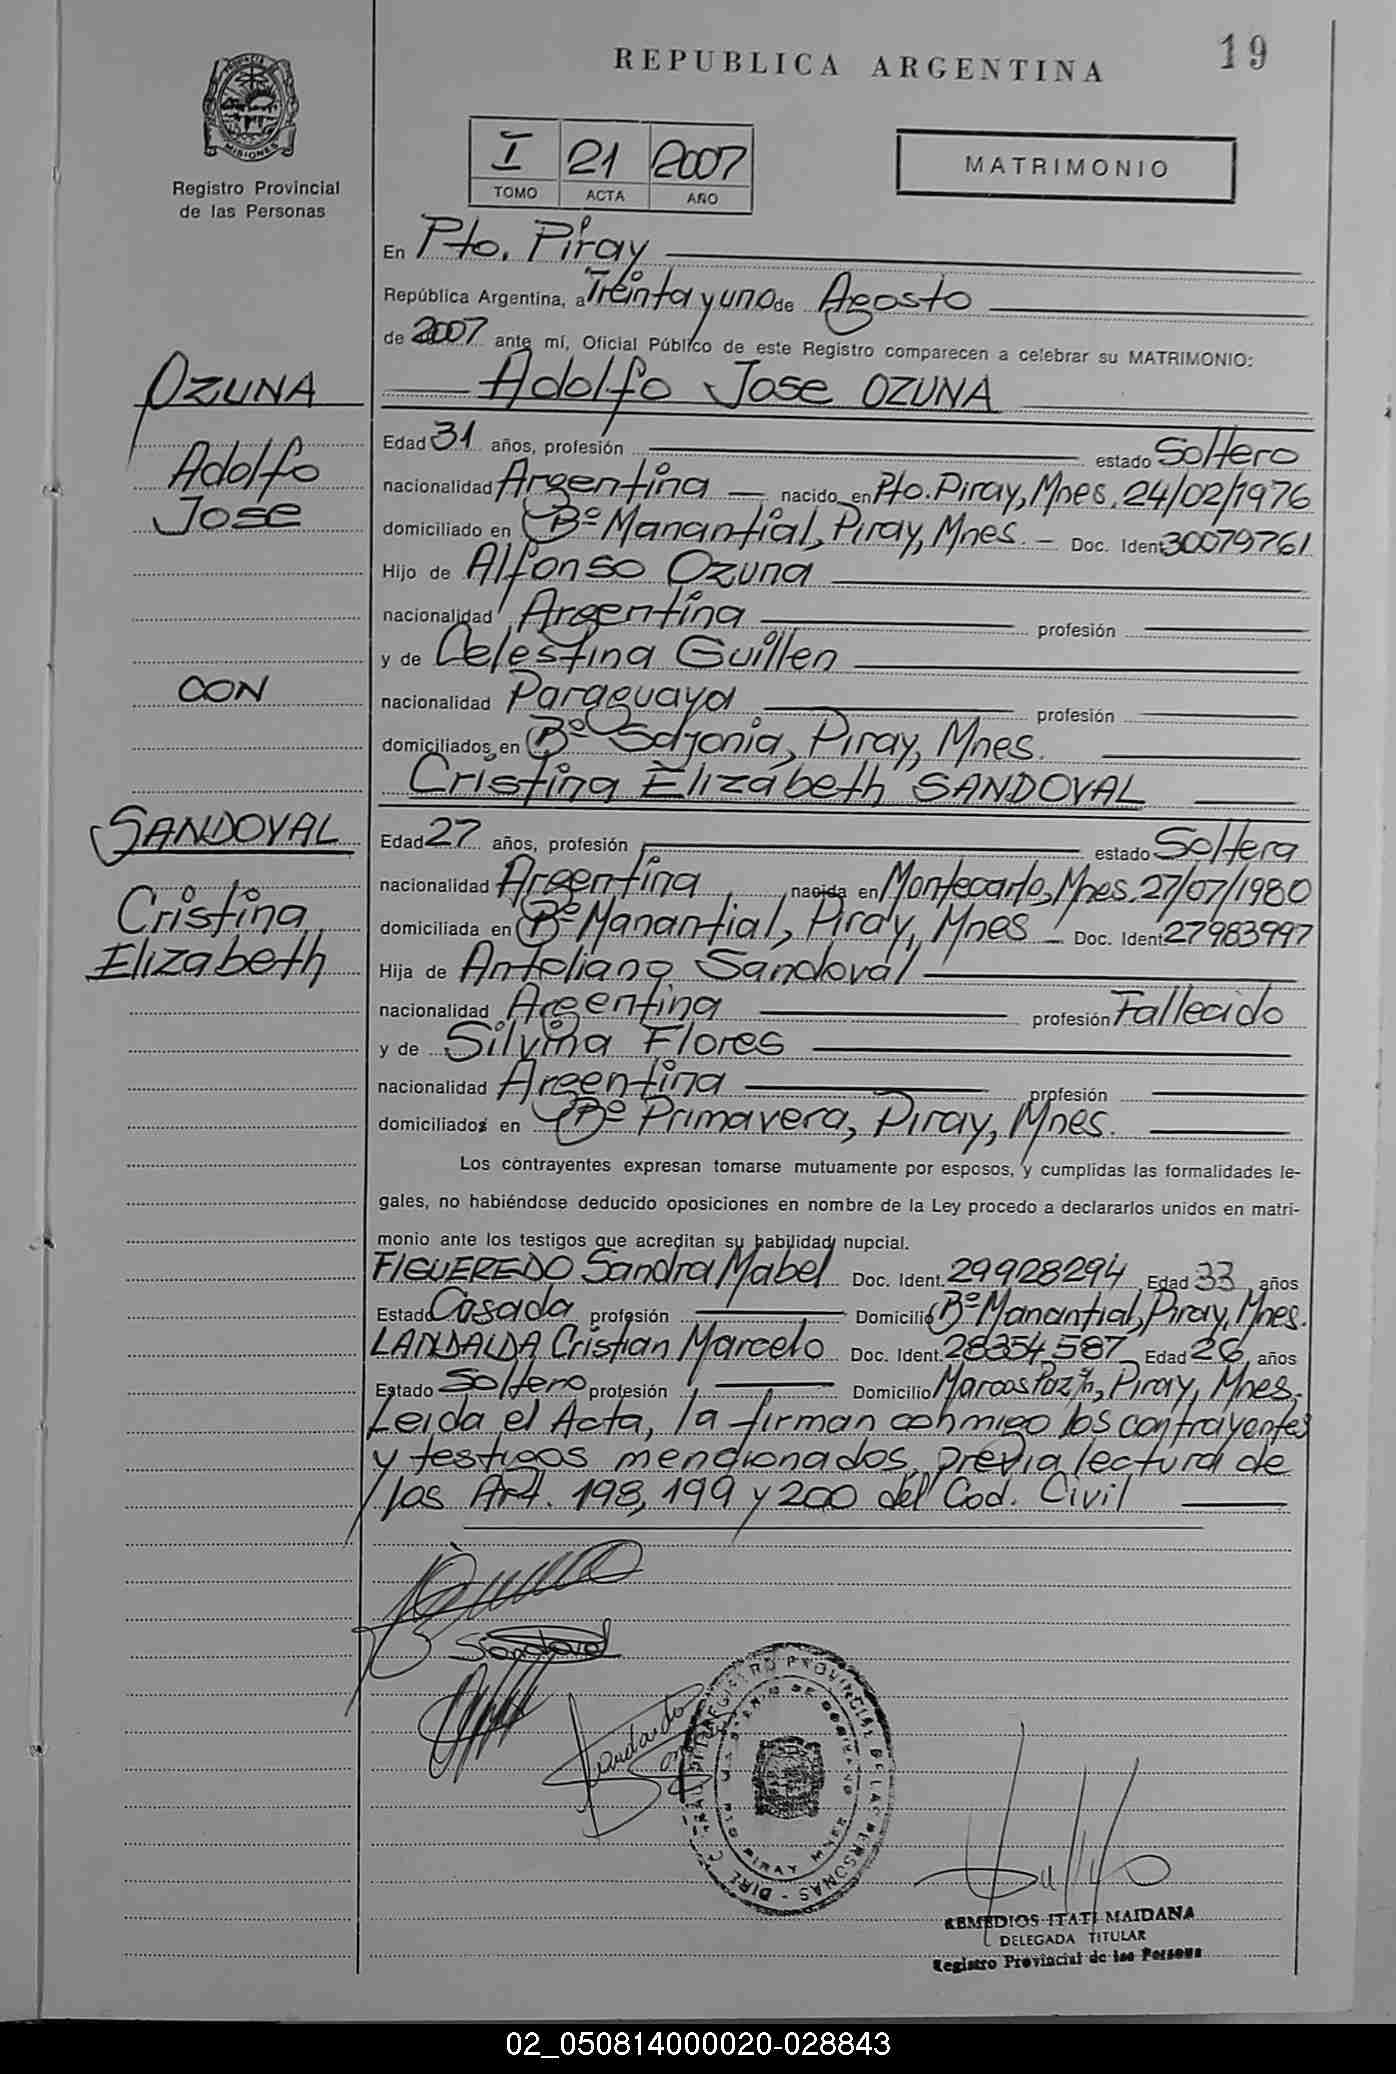 REPUBLICA ARGENTINA
19
PROVINCIA DE MISIONES
Registro Provincial
de las Personas
I 21 2007
TOMO ACTA AÑO
MATRIMONIO
En Pto. Piray
República Argentina, a Treinta y uno de Agosto
de 2007 ante mí, Oficial Público de este Registro comparecen a celebrar su MATRIMONIO:
OZUNA
Adolfo
Jose
CON
SANDOVAL
Cristina
Elizabeth
Adolfo Jose OZUNA
Edad 31 años, profesión estado Soltero
nacionalidad Argentina nacido en Pto. Piray, Mnes. 24/02/1976
domiciliado en Bº Manantial, Piray, Mnes. - Doc. Ident 30079761
Hijo de Alfonso Ozuna
nacionalidad Argentina profesión
y de Celestina Guillen
nacionalidad Paraguaya profesión
domiciliados en Bº Sajonia, Piray, Mnes.
Cristina Elizabeth SANDOVAL
Edad 27 años, profesión estado Soltera
nacionalidad Argentina nacida en Montecarlo, Mnes. 27/07/1980
domiciliada en Bº Manantial, Piray, Mnes - Doc. Ident 27983997
Hija de Antoliano Sandoval
nacionalidad Argentina profesión Fallecido
y de Silvina Flores
nacionalidad Argentina profesión
domiciliados en Bº Primavera, Piray, Mnes.
Los contrayentes expresan tomarse mutuamente por esposos, y cumplidas las formalidades le-
gales, no habiéndose deducido oposiciones en nombre de la Ley procedo a declararlos unidos en matri-
monio ante los testigos que acreditan su habilidad nupcial.
FIGUEREDO Sandra Mabel Doc. Ident. 29928294 Edad 33 años
Estado Casada profesión Domicilio Bº Manantial, Piray, Mnes.
LANDALDA Cristian Marcelo Doc. Ident. 28354587 Edad 26 años
Estado Soltero profesión Domicilio Marcos Paz s/n, Piray, Mnes.
Leida el Acta, la firman conmigo los contrayentes
y testigos mencionados, previa lectura de
los Art. 198, 199 y 200 del Cod. Civil
Sandoval
REGISTRO PROVINCIAL DE LAS PERSONAS
MINISTERIO DE GOBIERNO
PTO PIRAY MNES
REMEDIOS ITATI MAIDANA
DELEGADA TITULAR
Registro Provincial de las Personas
02_050814000020-028843